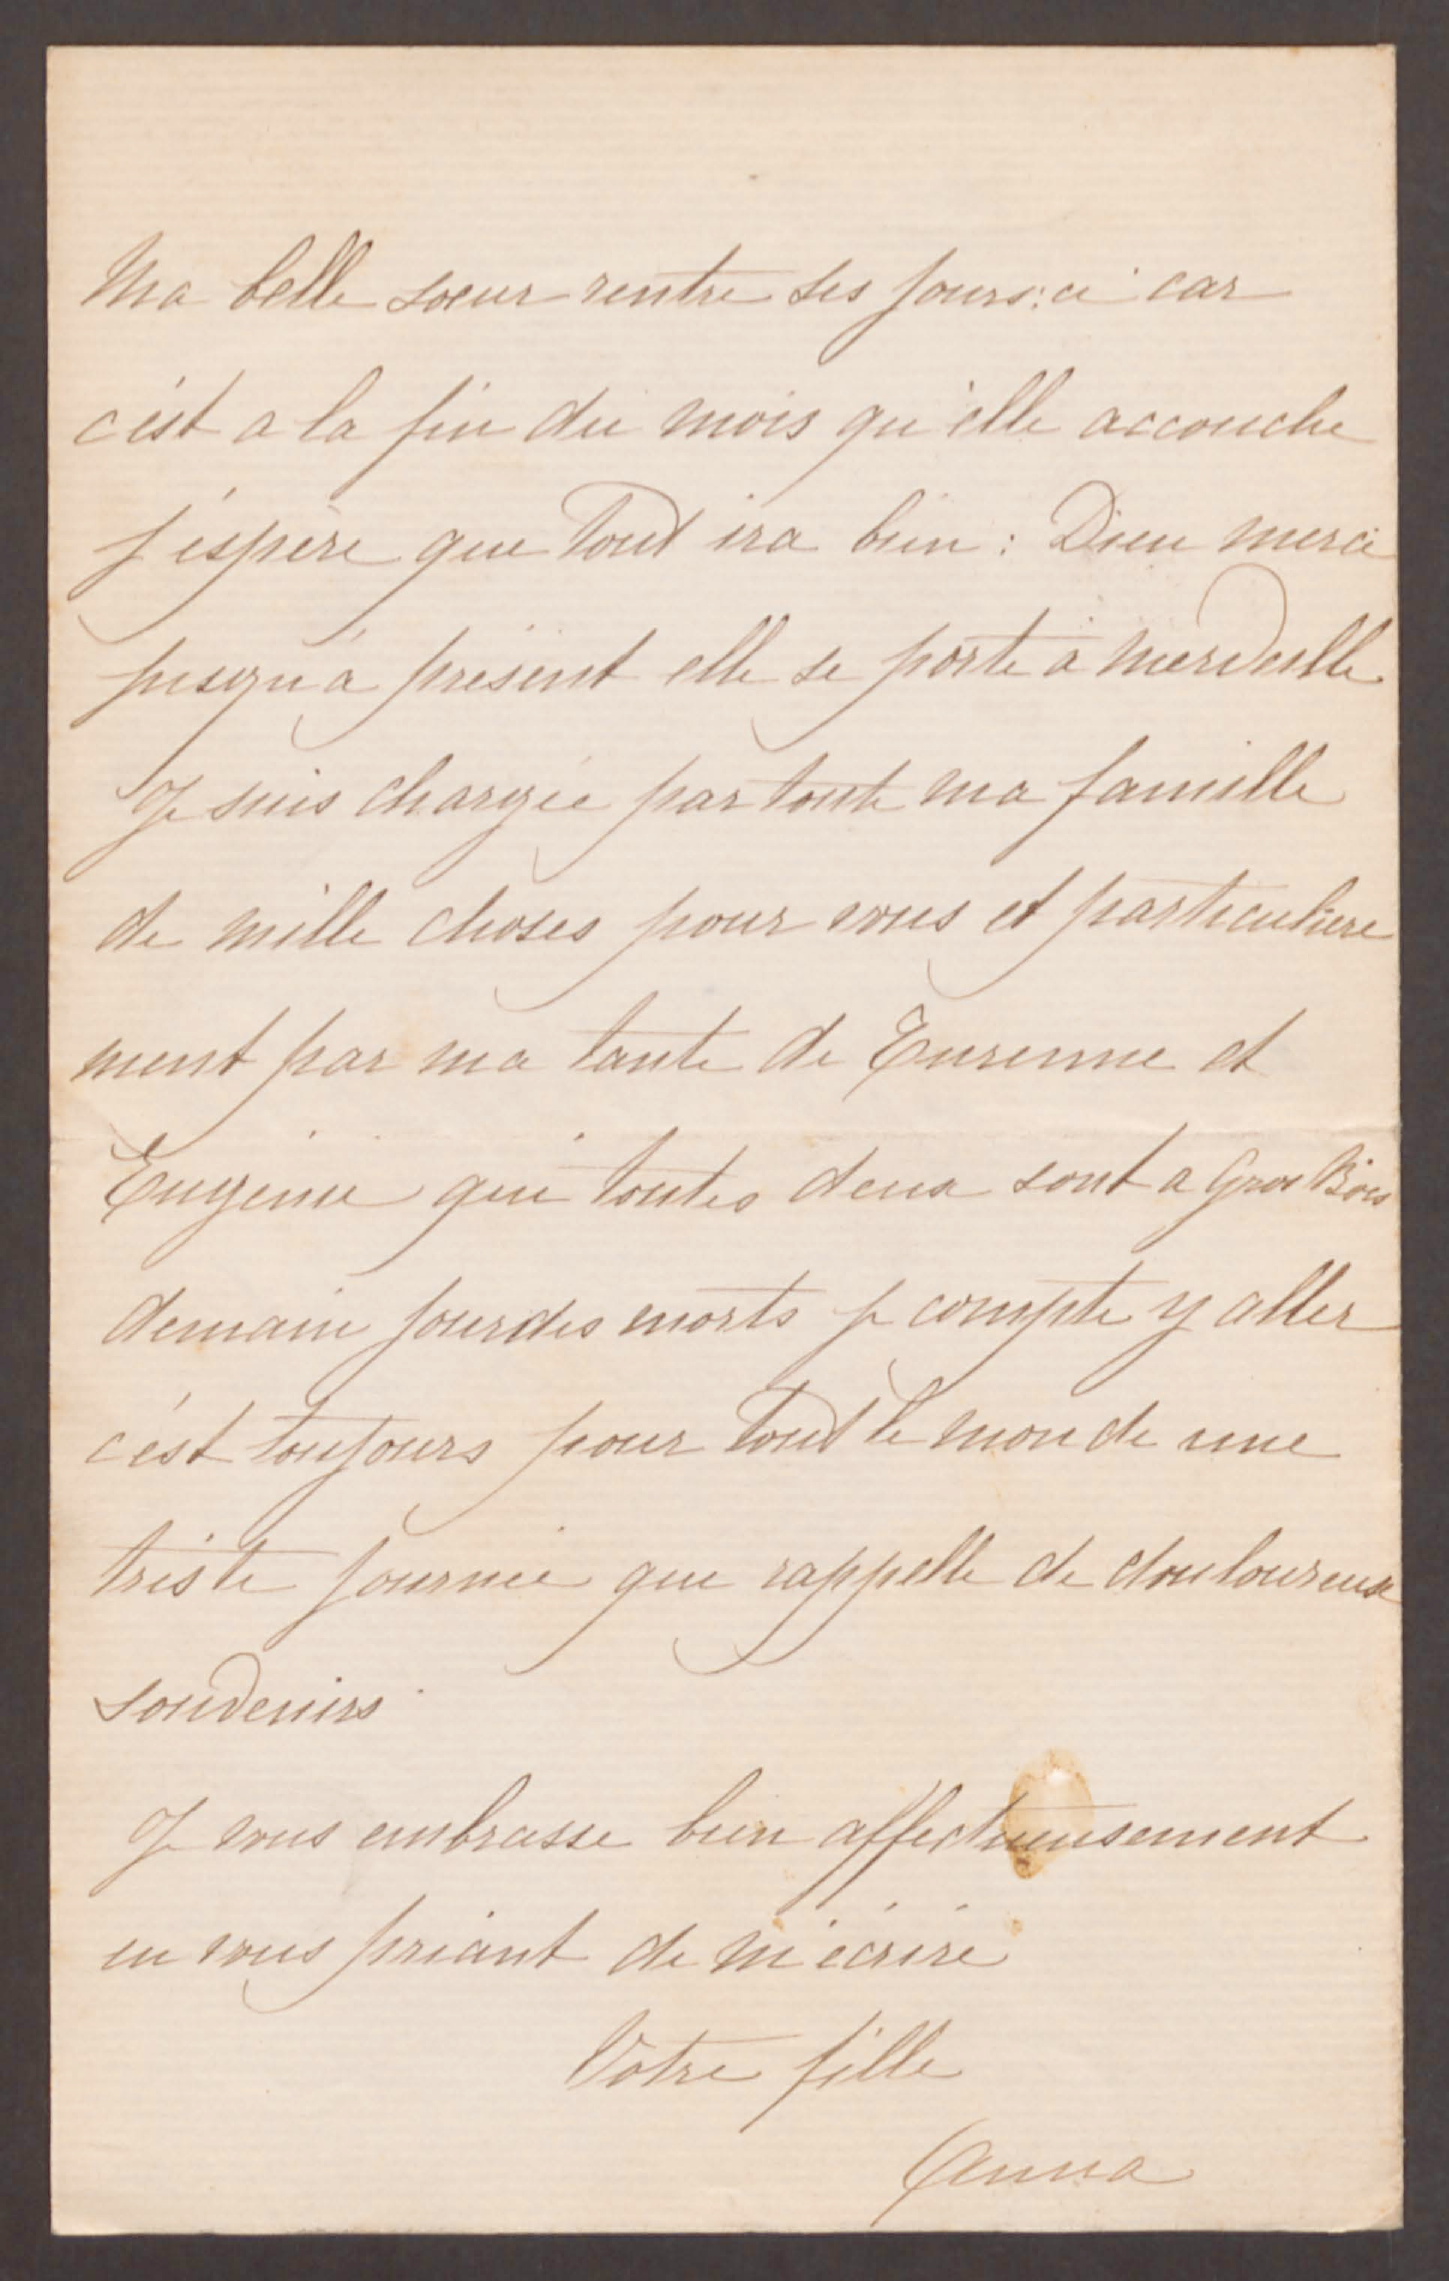 Ma belle soeur rentre ses jours:ci car
c'est a la fin du mois qu'elle accouche
j'espère que tout ira bien : Dieu merci
jusqu'à présent elle se porte à merveille
Je suis chargée par toute ma famille
de mille choses pour vous et particulière
ment par ma tante de Turenne et
Eugenie qui toutes deux sont a Gros Bois
demain jour des morts je compte y aller
c'est toujours pour tout le monde une
triste journée que rappelle de douloureuse
souvenirs.
Je vous embrasse bien affectueusement
en vous priant de m'écrire
Votre fille
Anna